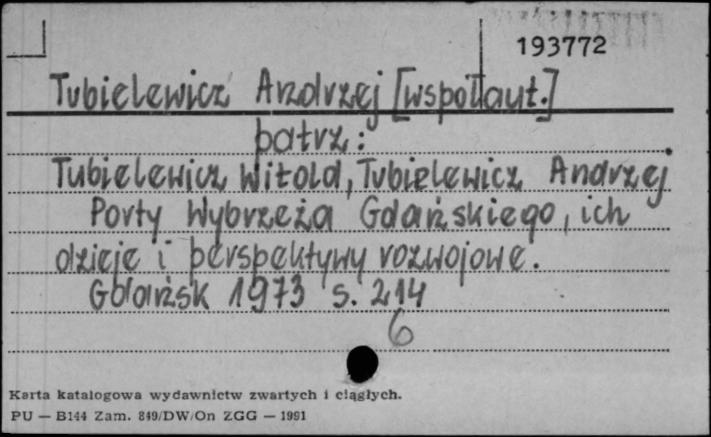 193772
Tubielewicz Andrzej [współaut.]
patrz:
Tubielewicz Witold, Tubielewicz Andrzej
Porty Wybrzeża Gdańskiego, ich
dzieje i perspektywy rozwojowe.
Gdańsk 1973 s. 214
6
Karta katalogowa wydawnictw zwartych i ciągłych.
PU — B144 Zam. 849/DW/On ZGG — 1991